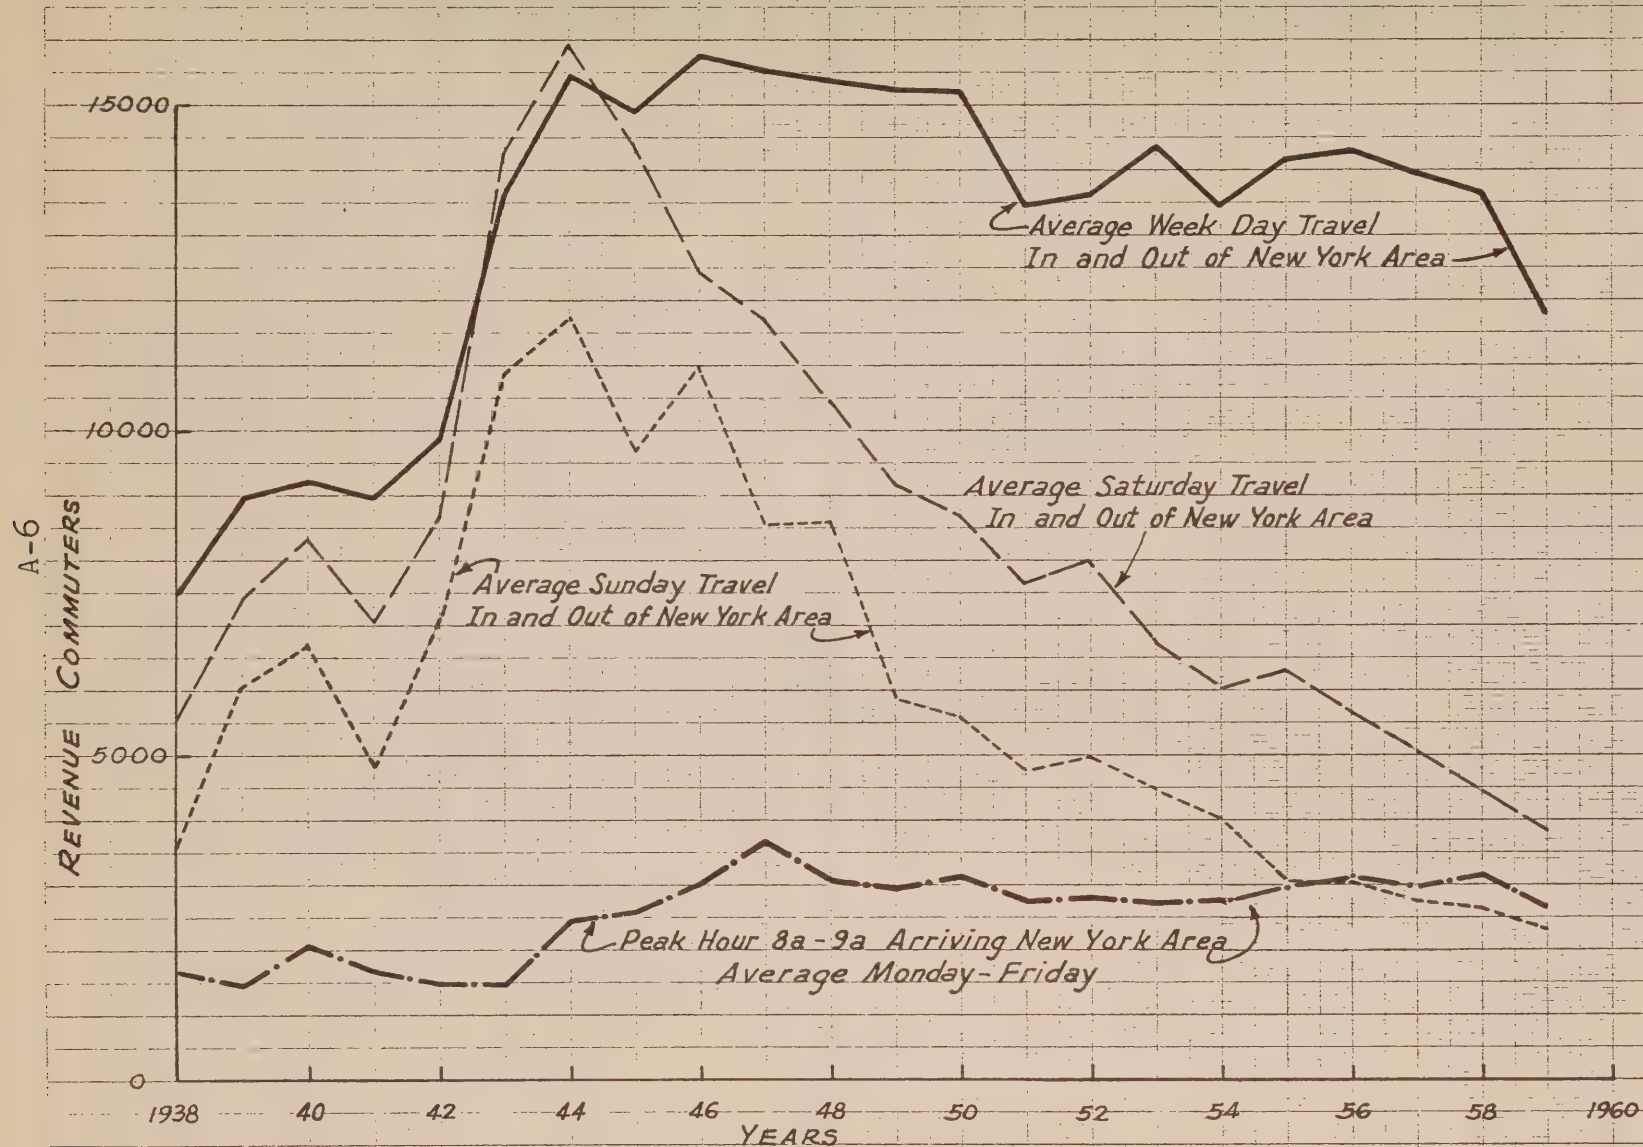 A-6
REVENUE COMMUTERS
15000
10000
5000
0
Average Week Day Travel
In and Out of New York Area
Average Saturday Travel
In and Out of New York Area
Average Sunday Travel
In and Out of New York Area
Peak Hour 8a-9a Arriving New York Area
Average Monday-Friday
1938 40 42 44 46 48 50 52 54 56 58 1960
YEARS